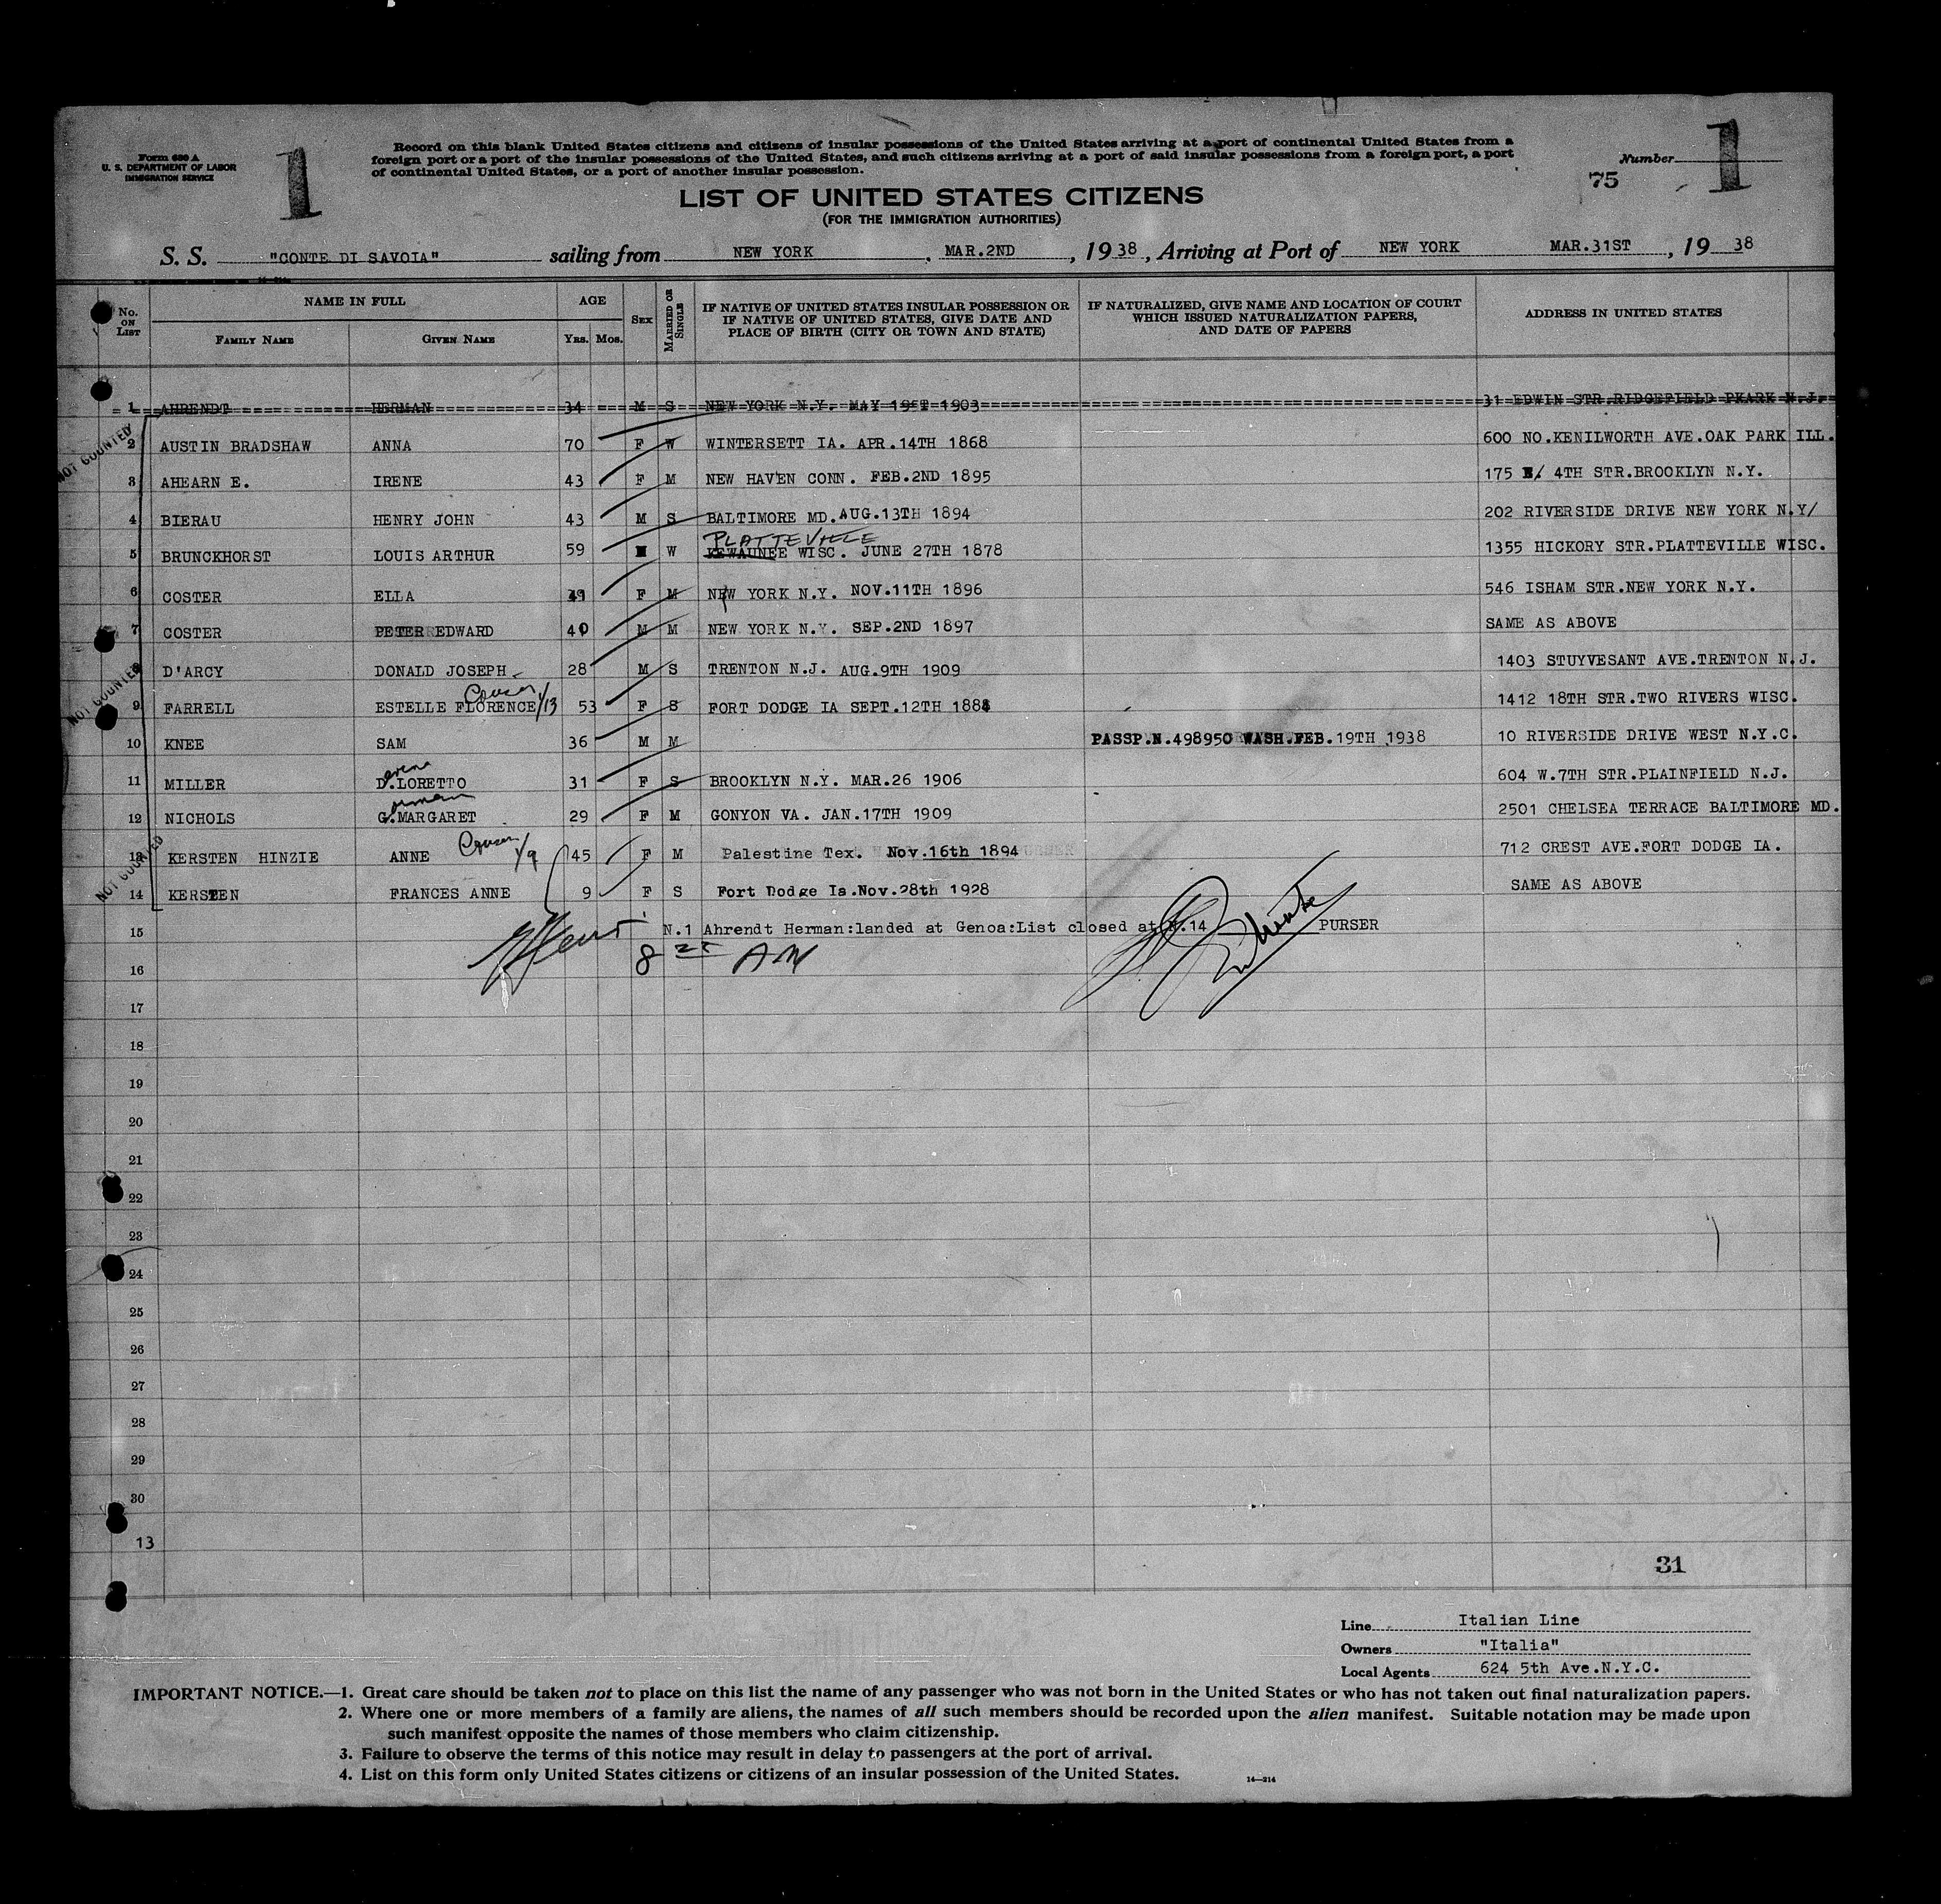 Form 630 A
U. S. DEPARTMENT OF LABOR
IMMIGRATION SERVICE
1
Record on this blank United States citizens and citizens of insular possessions of the United States arriving at a port of continental United States from a
foreign port or a port of the insular possessions of the United States, and such citizens arriving at a port of said insular possessions from a foreign port, a port
of continental United States, or a port of another insular possession.
Number
1
75
LIST OF UNITED STATES CITIZENS
(FOR THE IMMIGRATION AUTHORITIES)
S. S. "CONTE DI SAVOIA" sailing from NEW YORK, MAR.2ND, 1938, Arriving at Port of NEW YORK MAR.31ST, 19 38
No. ON LIST NAME IN FULL FAMILY NAME GIVEN NAME AGE YRS. MOS. SEX MARRIED OR SINGLE IF NATIVE OF UNITED STATES INSULAR POSSESSION OR IF NATIVE OF UNITED STATES, GIVE DATE AND PLACE OF BIRTH (CITY OR TOWN AND STATE) IF NATURALIZED, GIVE NAME AND LOCATION OF COURT WHICH ISSUED NATURALIZATION PAPERS, AND DATE OF PAPERS ADDRESS IN UNITED STATES
1 AHRENDT HERMAN 34 M S NEW YORK N.Y. MAY 19ST 1903 31 EDWIN STR.RIDGEFIELD PKARK N.J.
NOT COUNTED
2 AUSTIN BRADSHAW ANNA 70 F W WINTERSETT IA. APR.14TH 1868 600 NO.KENILWORTH AVE.OAK PARK ILL.
3 AHEARN E. IRENE 43 F M NEW HAVEN CONN. FEB.2ND 1895 175 E/ 4TH STR.BROOKLYN N.Y.
4 BIERAU HENRY JOHN 43 M S BALTIMORE MD.AUG.13TH 1894 202 RIVERSIDE DRIVE NEW YORK N.Y/
PLATTEVILLE
5 BRUNCKHORST LOUIS ARTHUR 59 M W KEWAUNEE WISC. JUNE 27TH 1878 1355 HICKORY STR.PLATTEVILLE WISC.
6 COSTER ELLA F M NEW YORK N.Y. NOV.11TH 1896 546 ISHAM STR.NEW YORK N.Y.
7 COSTER PETER EDWARD 40 M M NEW YORK N.Y. SEP.2ND 1897 SAME AS ABOVE
NOT COUNTED
8 D'ARCY DONALD JOSEPH 28 M S TRENTON N.J. AUG.9TH 1909 1403 STUYVESANT AVE.TRENTON N.J.
9 FARRELL ESTELLE FLORENCE 1/13 53 F S FORT DODGE IA SEPT.12TH 1884 1412 18TH STR.TWO RIVERS WISC.
10 KNEE SAM 36 M M PASSP.N.498950 WASH.FEB.19TH 1938 10 RIVERSIDE DRIVE WEST N.Y.C.
11 MILLER D.LORETTO 31 F S BROOKLYN N.Y. MAR.26 1906 604 W.7TH STR.PLAINFIELD N.J.
12 NICHOLS G.MARGARET 29 F M GONYON VA. JAN.17TH 1909 2501 CHELSEA TERRACE BALTIMORE MD.
NOT COUNTED
13 KERSTEN HINZIE ANNE 1/9 45 F M Palestine Tex. Nov.16th 1894 712 CREST AVE.FORT DODGE IA.
14 KERSTEN FRANCES ANNE 9 F S Fort Dodge Ia.Nov.28th 1928 SAME AS ABOVE
15 N.1 Ahrendt Herman:landed at Genoa:List closed at N.14 PURSER
8 AM
16
17
18
19
20
21
22
23
24
25
26
27
28
29
30
13
31
Line Italian Line
Owners "Italia"
Local Agents 624 5th Ave.N.Y.C.
IMPORTANT NOTICE.—1. Great care should be taken not to place on this list the name of any passenger who was not born in the United States or who has not taken out final naturalization papers.
2. Where one or more members of a family are aliens, the names of all such members should be recorded upon the alien manifest. Suitable notation may be made upon
such manifest opposite the names of those members who claim citizenship.
3. Failure to observe the terms of this notice may result in delay to passengers at the port of arrival.
4. List on this form only United States citizens or citizens of an insular possession of the United States.
14—214